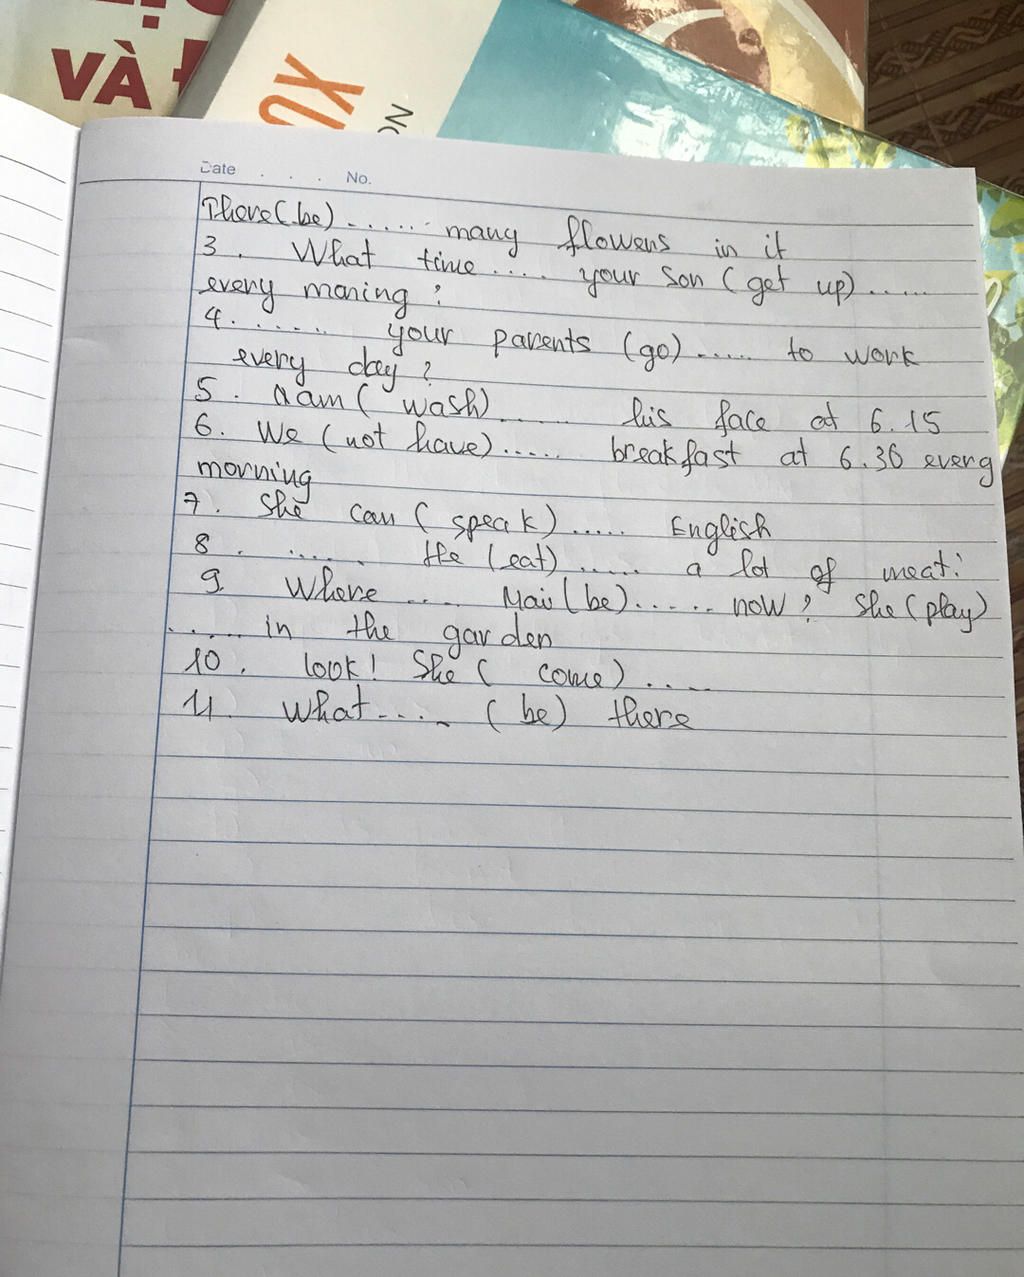 VÀ
XU
NG
Date . . . No.
There (be) ...... many flowers in it
3. What time .... your son (get up) .....
every moring?
4. ...... your parents (go) ..... to work
every day?
5. Nam ( wash) ...... his face at 6.15
6. We (not have) ..... breakfast at 6.30 every
morning
7. She can (speak) ..... English
8. ...... He (eat) ..... a lot of meat?
9. Where .... Mai (be) ..... now? She (play)
...... in the garden
10. look! She ( come) ....
11. What .... (be) there